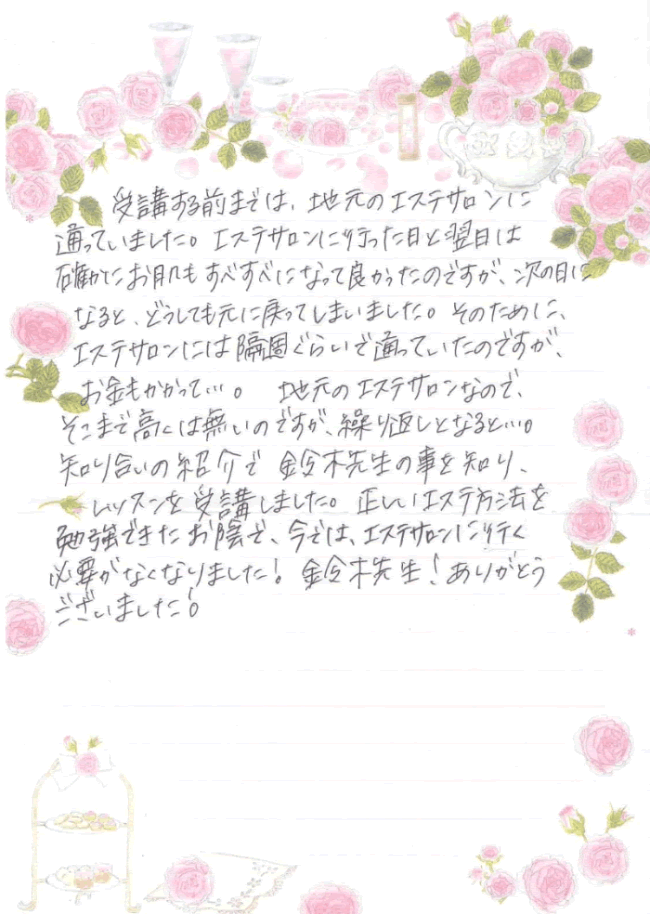 受講する前までは、地元のエステサロンに
通っていました。エステサロンに行った日と翌日は
確かにお肌もすべすべになって良かったのですが、次の日に
なると、どうしても元に戻ってしまいました。そのために、
エステサロンには隔週ぐらいで通っていたのですが、
お金もかかって…。 地元のエステサロンなので、
そこまで高くは無いのですが、繰り返しとなると…。
知り合いの紹介で 鈴木先生の事を知り、
レッスンを受講しました。正しいエステ方法を
勉強できたお陰で、今では、エステサロンに行く
必要がなくなりました！ 鈴木先生！ありがとう
ございました！